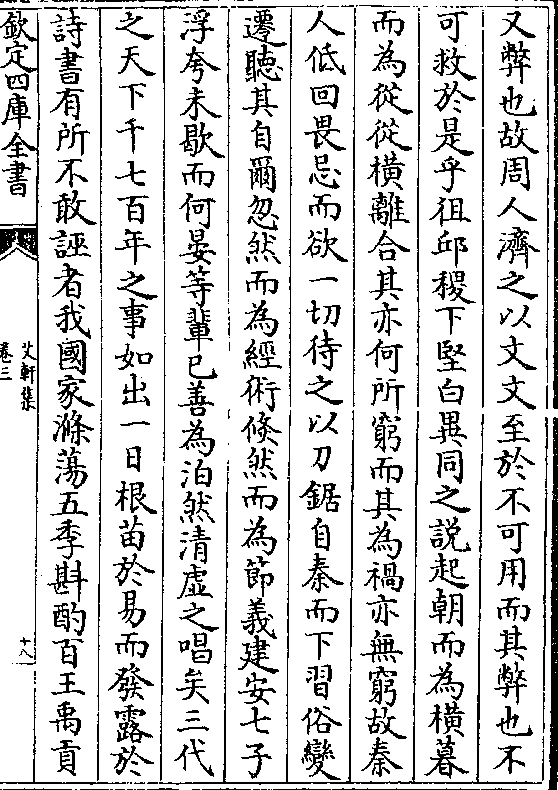 又弊也故周人濟之以文文至於不可用而其弊也不
可救於是乎徂邱稷下堅白異同之説起朝而為橫暮
而為從從橫離合其亦何所窮而其為禍亦無窮故秦
人低回畏忌而欲一切待之以刀鋸自秦而下習俗變
遷聽其自爾忽然而為經術倐然而為節義建安七子
浮夸未歇而何晏等輩已善為泊然清虛之唱矣三代
之天下千七百年之事如出一日根苗於易而發露於
詩書有所不敢誣者我國家滌蕩五季斟酌百王禹貢
欽定四庫全書
艾軒集
卷三
十八